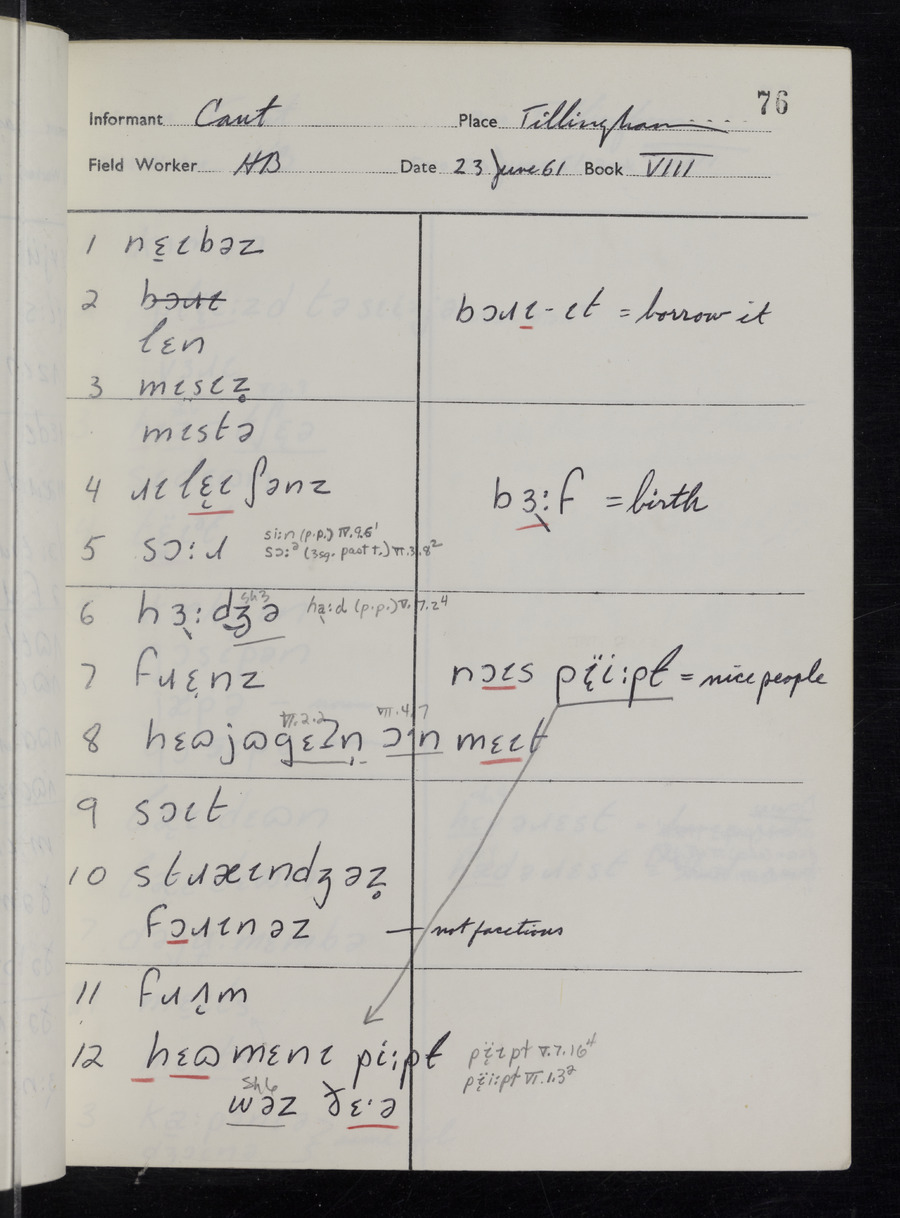 76
Informant Caut Place Tillingham
Field Worker HB Date 23 June 61 Book VIII
1 nɛ̣ɪbəz
2 bɔɹɪ bɔɹɪ-ɪt = borrow it
lɛn
3 mɪsɪz̥
mɪstə
4 ɹɪlɛ̣ɪʃənz bɜ̣:f = birth
5 sɔ:ɹ si:n (p.p.) IV.9.6¹
sɔ:ᵊ (3sg. past t.) VI.3.8²
6 hɜ̣:dʒə sh3 ha̤:d (p.p.) V.7.2⁴
7 fɹɛ̣nz nɔɪs pɪ̤̈i:pɫ = nice people
VI.2.2 VII.4.7
8 hɛɷjɷgɛʔn̩ ɔʔn mɛɪt
9 sɔɪt
10 stɹæɪndʒəz̥
fɔɹɪnəz — not facetious
11 fɹʌ̣m
12 hɛɷmɛnɪ pi:pɫ pɪ̤̈ɪpɫ V.7.16⁴
pɪ̤̈i:pɫ VI.1.3²
sh6
wəz ð̞ɛ·ə